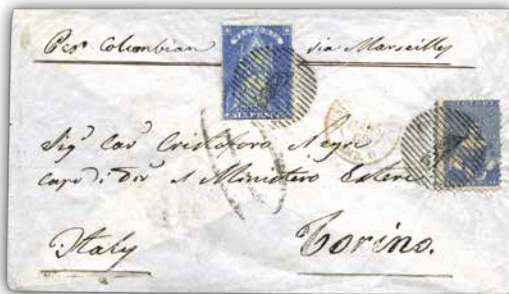 Per Columbian via Marseilles
VICTORIA
SIX PENCE
Sigr Cavr Cristoforo Negri
Capo di Don al Ministero Estere
Italy
Torino.